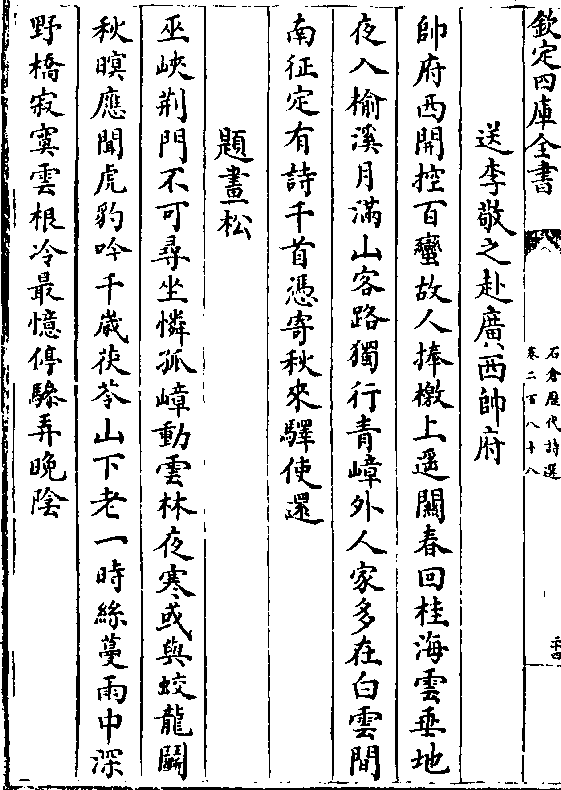 欽定四庫全書
石倉歷代詩選
卷二百八十八
二十四
送李敬之赴廣西帥府
帥府西開控百蠻故人捧檄上遥關春回桂海雲垂地
夜入榆溪月滿山客路獨行青嶂外人家多在白雲間
南征定有詩千首憑寄秋來驛使還
題畫松
巫峽荆門不可尋坐憐孤嶂動雲林夜寒或與蛟龍鬬
秋暝應聞虎豹吟千歲茯苓山下老一時絲蔓雨中深
野橋寂寞雲根冷最憶停驂弄晚陰